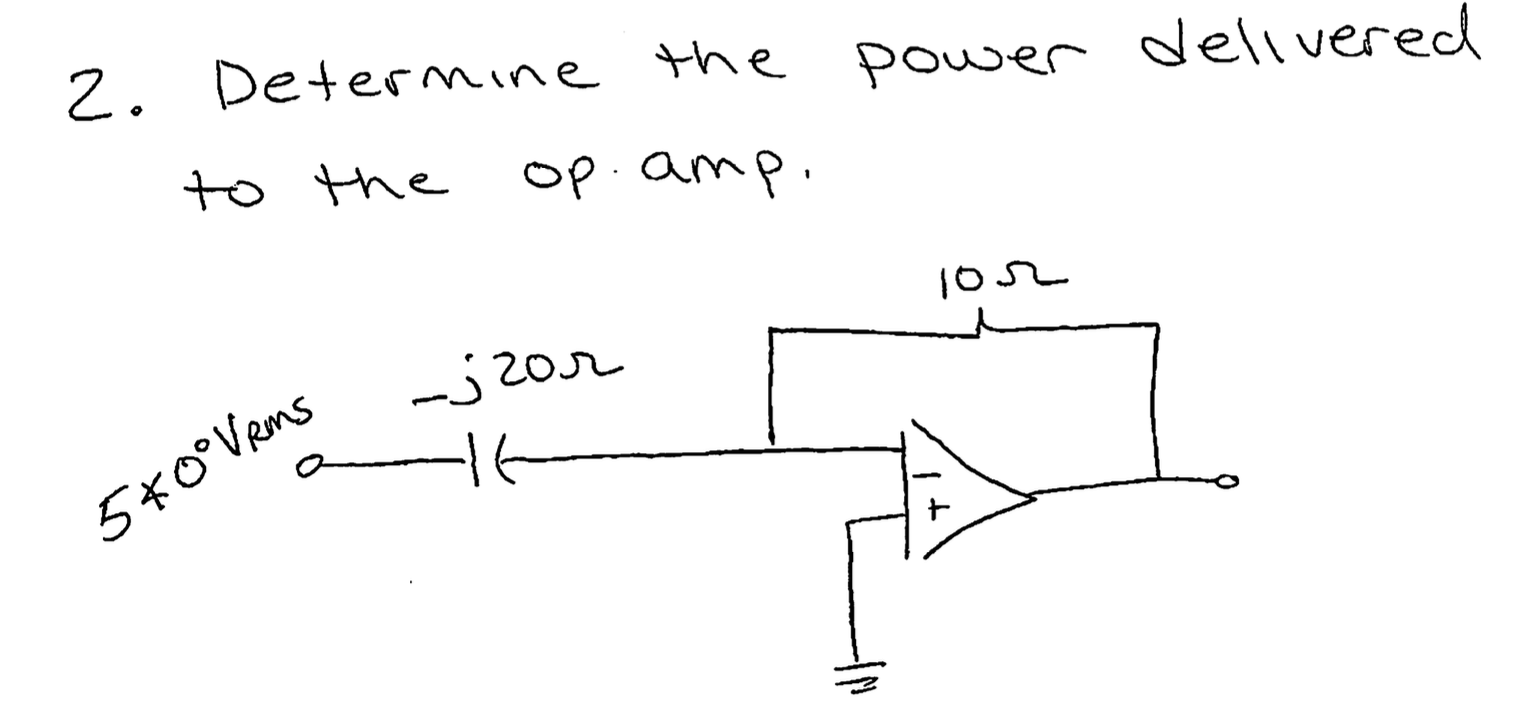 2. Determine the power delivered
to the op. amp.
10Ω
-j20Ω
5∡0° VRMS
-
+